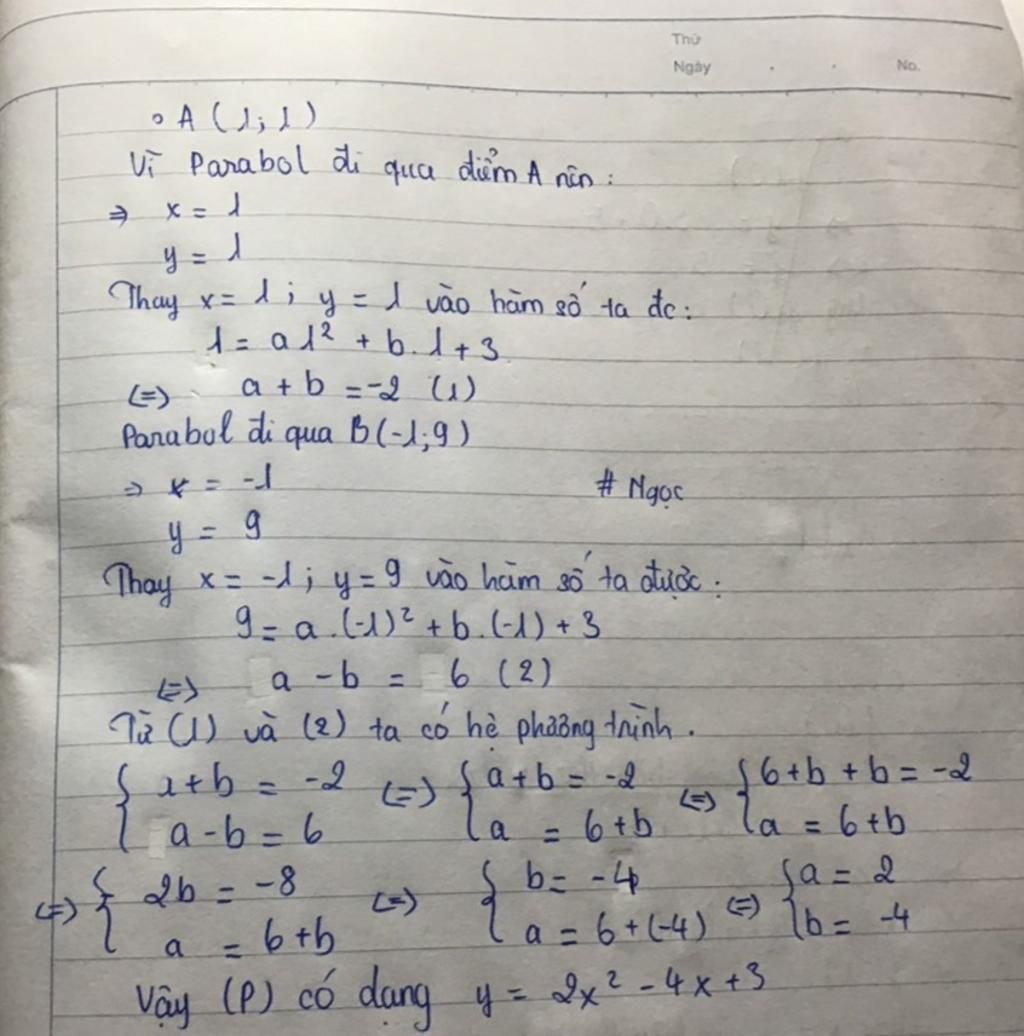 Thứ
Ngày . . No.
∘ A (1; 1)
Vì Parabol đi qua điểm A nên :
⇒ x = 1
y = 1
Thay x = 1 ; y = 1 vào hàm số ta đc :
1 = a 1² + b. 1 + 3
(=) a + b = -2 (1)
Parabol đi qua B(-1; 9)
⇒ x = -1 # Ngọc
y = 9
Thay x = -1 ; y = 9 vào hàm số ta được :
9 = a . (-1)² + b . (-1) + 3
(=) a - b = 6 (2)
Từ (1) và (2) ta có hệ phương trình .
{ a + b = -2 (=) { a + b = -2 (=) { 6 + b + b = -2
a - b = 6 a = 6 + b a = 6 + b
(=) { 2b = -8 (=) { b = -4 (=) { a = 2
a = 6 + b a = 6 + (-4) b = -4
Vậy (P) có dạng y = 2x² - 4x + 3